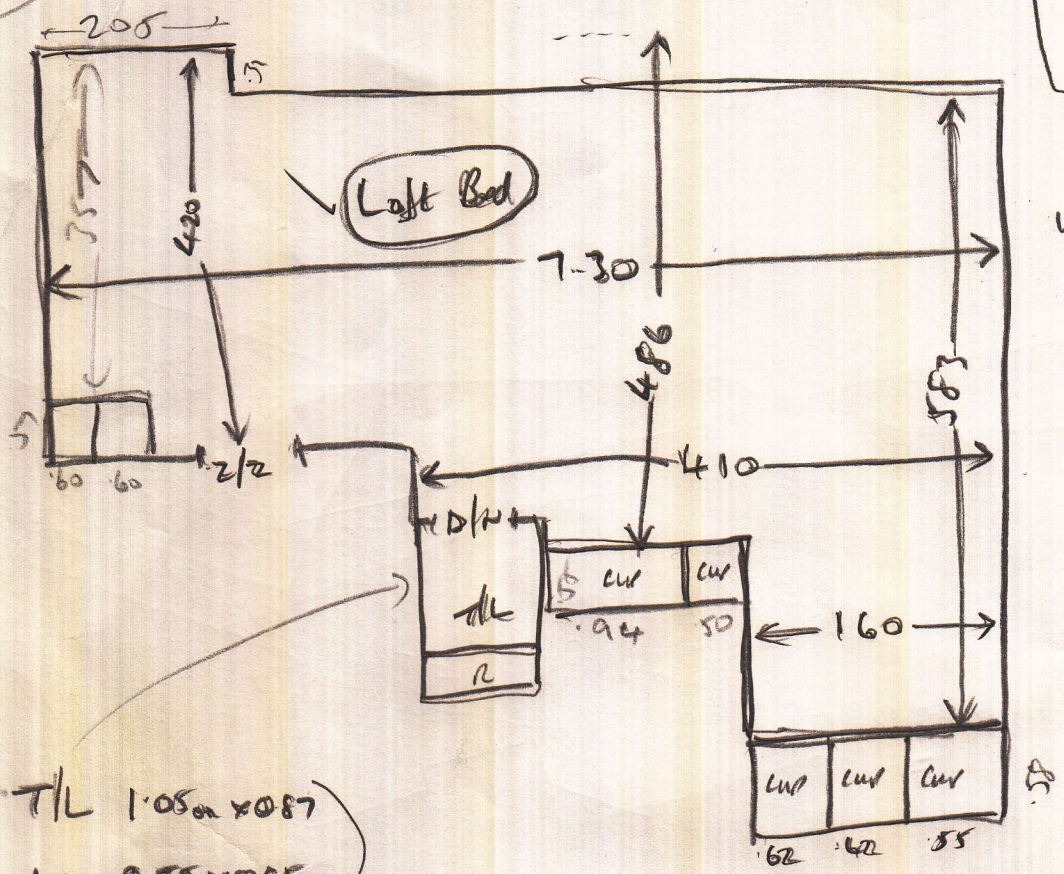 205
.5
357
420
Loft Bed
7-30
486
583
410
.60 .60
D/N
T/L
R
Cup
Cup
.94
50
160
Cup
Cup
Cup
.58
.62
.55
T/L 1.05m x 0.87